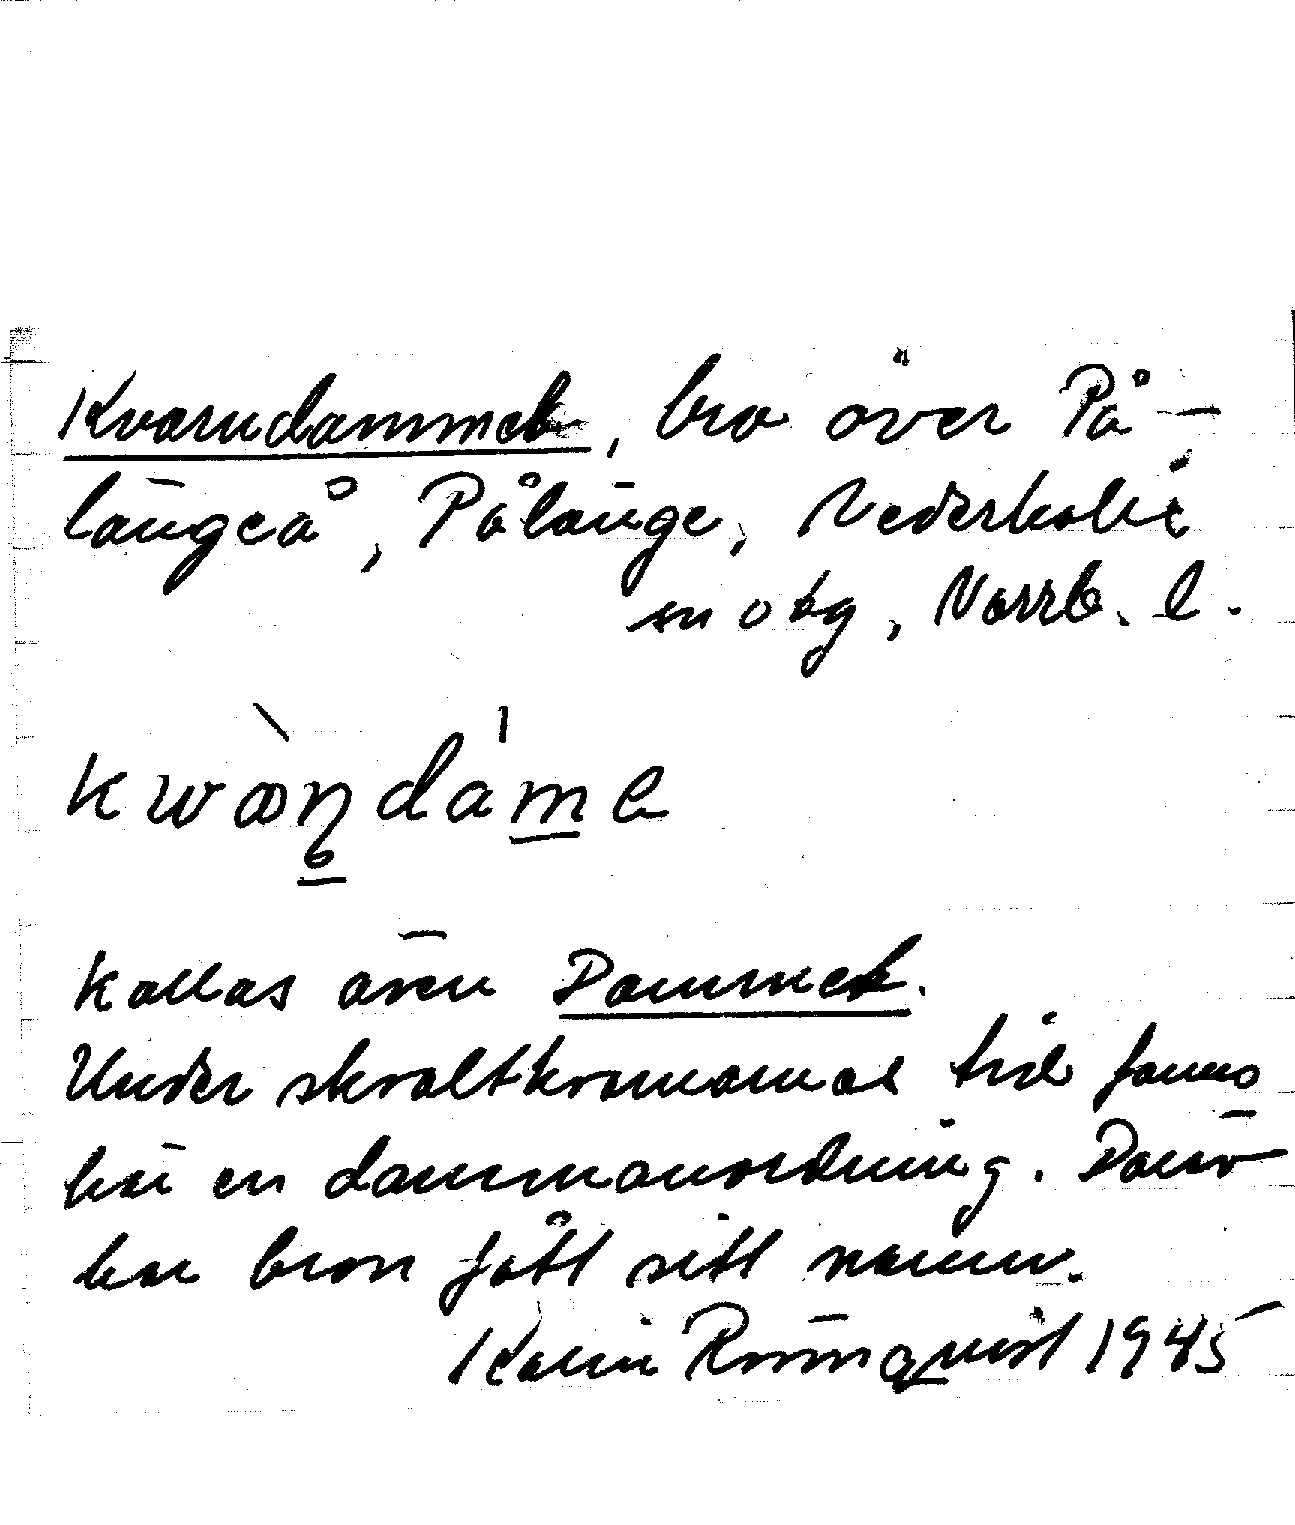 Kvarndammen, bro över På-
längeå, Pålänge, Nederkalix
sn o tg, Norrb. l.
kwæ̀ṇdám̲e
Kallas även Dammen.
Under skvaltkvarnarnas tid fanns
här en dammanordning. Därav
har bron fått sitt namn.
Karin Rönnquist 1945